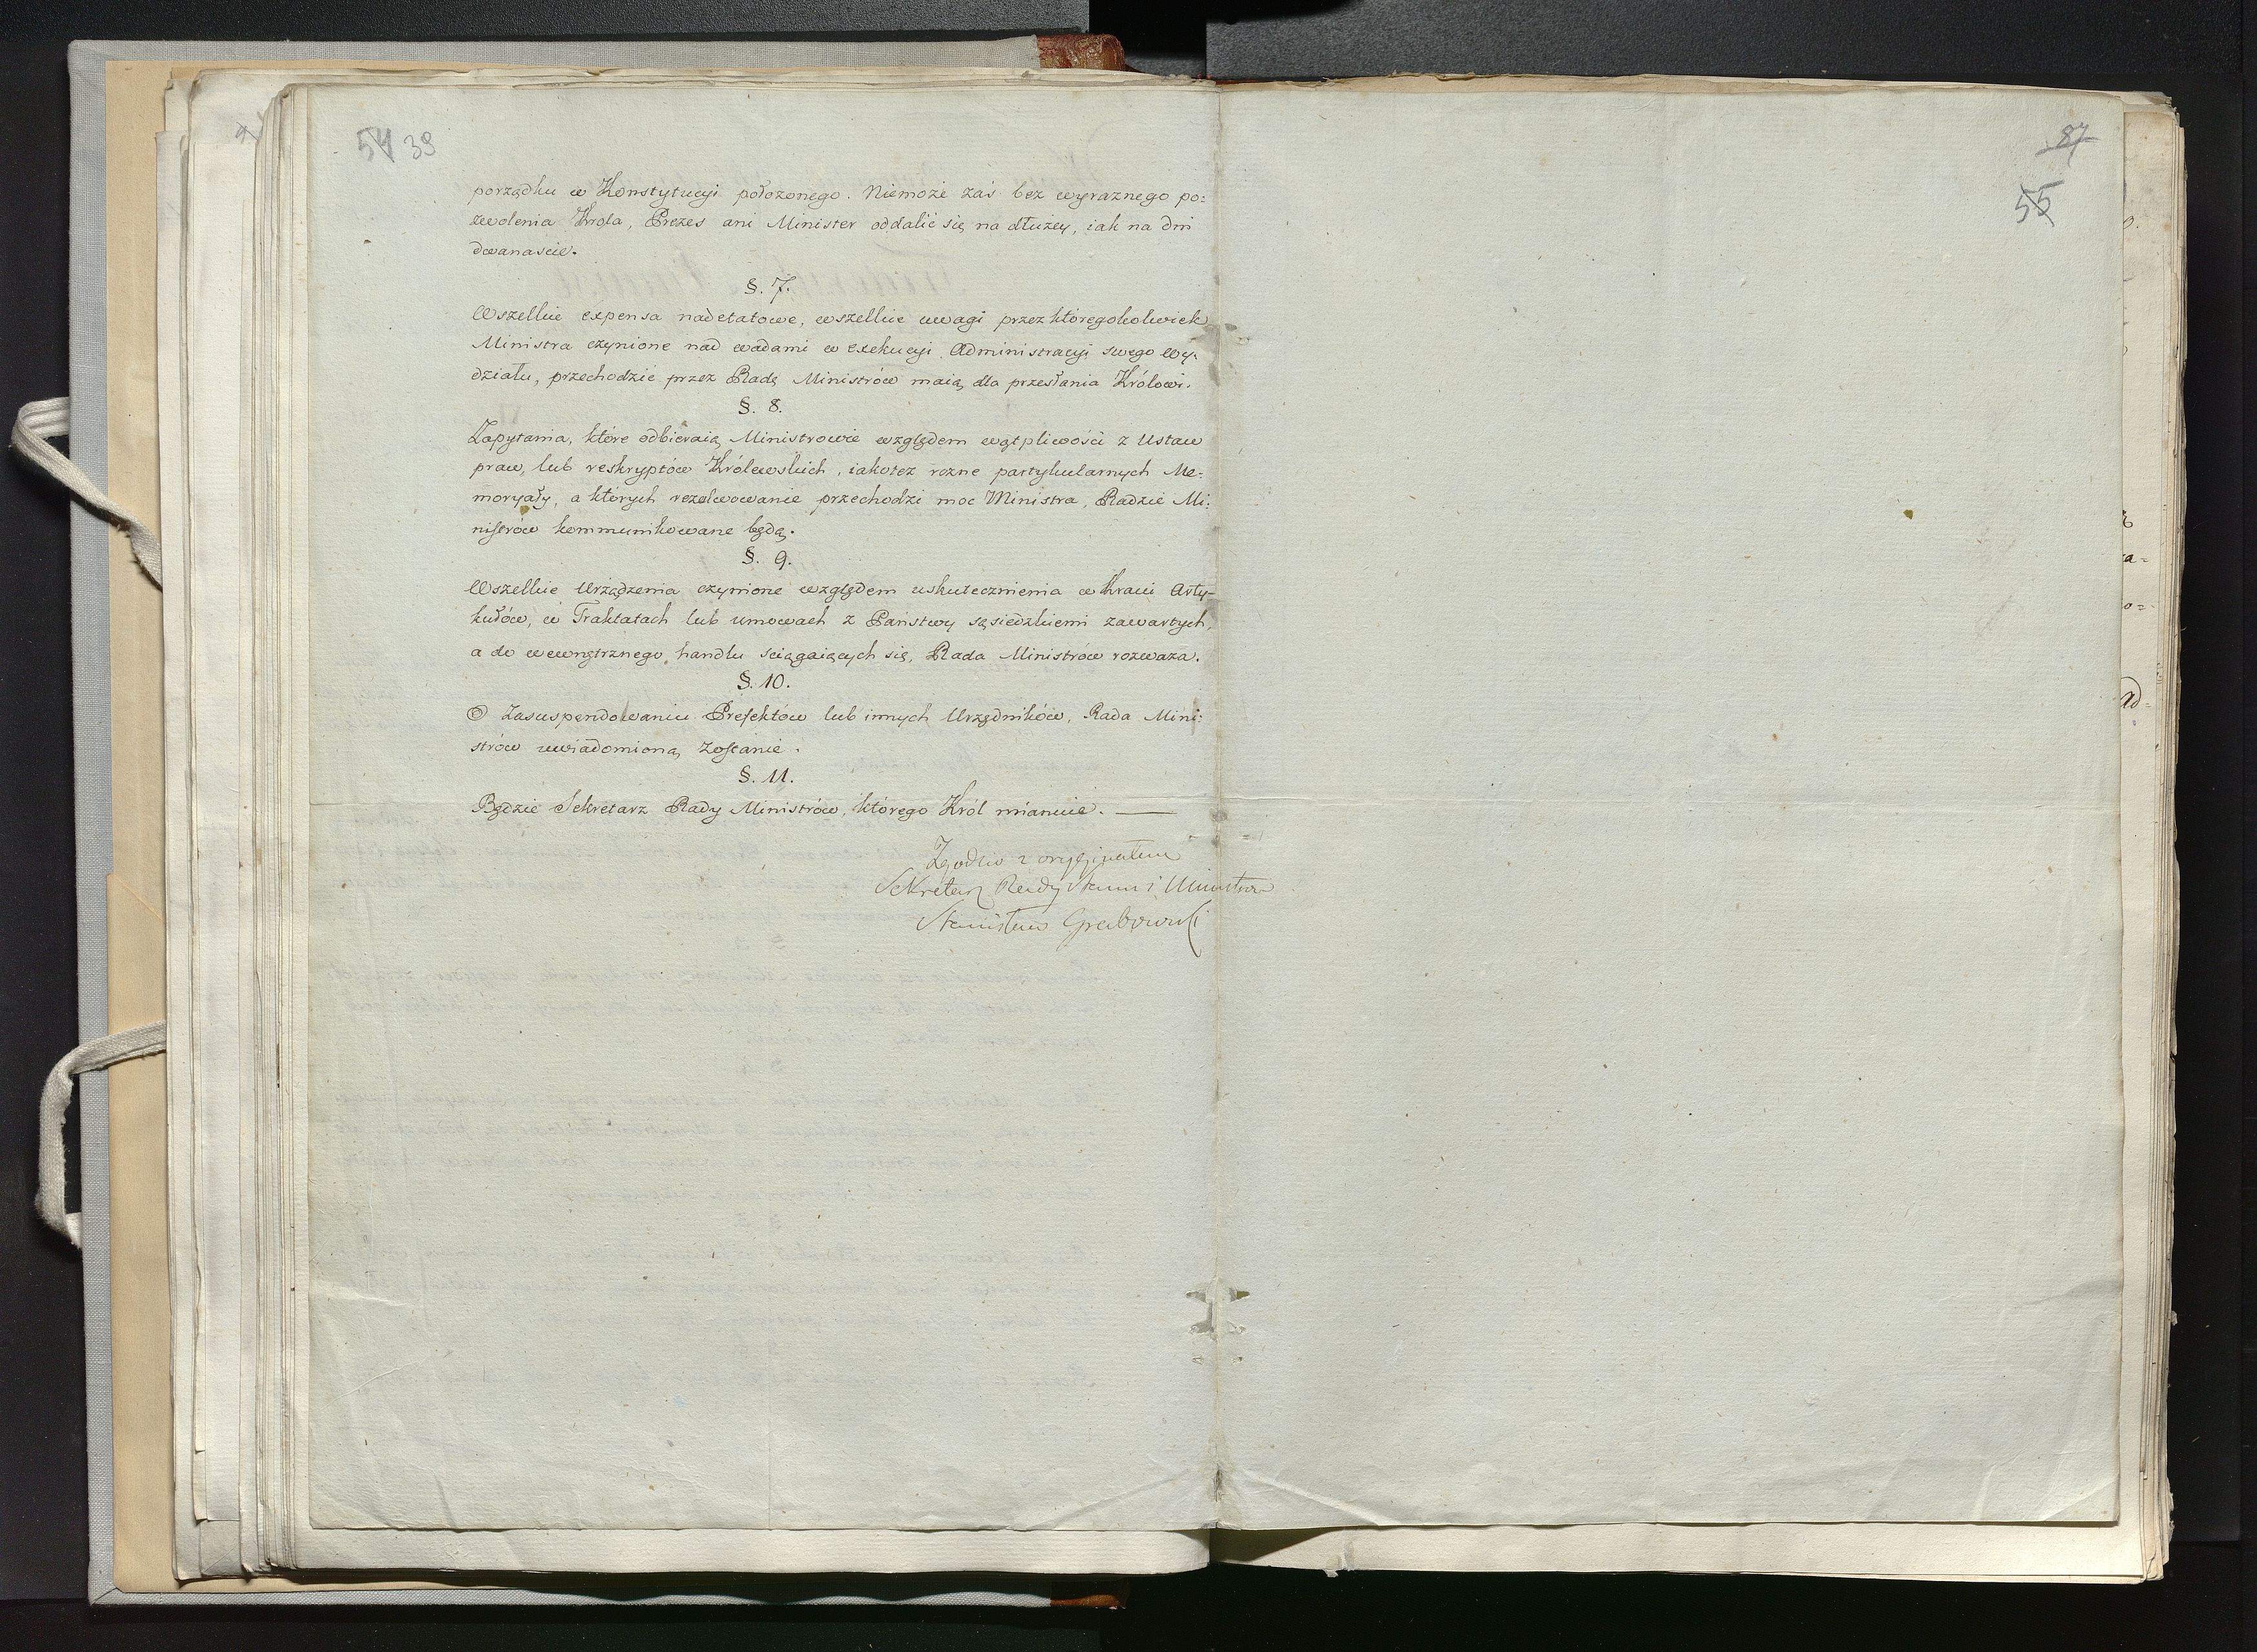 54 39
porządku w Konstytucyi położonego. Niemoże zaś bez wyraznego po:
zwolenia Krola, Prezes ani Minister oddalić się na dłużey, iak na dni
dwanaście.
§. 7.
Wszelkie expensa nadetatowe, wszelkie uwagi przez któregokolwiek
Ministra czynione nad wadami w exekucyi Administracyi swego Wy:
działu, przechodzić przez Radę Ministrów maią, dla przesłania Królowi.
§. 8.
Zapytania, które odbieraią Ministrowie względem wątpliwości z Ustaw
praw, lub reskryptów Królewskich, iakotez rozne partykularnych Me:
moryały, a których rezolwowanie przechodzi moc Ministra, Radzie Mi:
nistrów kommunikowane będą.
§. 9.
Wszelkie Urządzenia czynione względem uskutecznienia w Kraiu Arty-
kułów, w Traktatach lub umowach z Państwy sąsiedzkiemi zawartych,
a do wewnętrznego handlu sciągaiących się, Rada Ministrów rozważa.
§. 10.
O Zasuspendowaniu Prefektów lub innych Urzędników, Rada Mini:
strów uwiadomioną zostanie.
§. 11.
Będzie Sekretarz Rady Ministrów, którego Król mianuie. —
Zgodno z oryginałem
Sekretarz Rady Stanu i Ministrow
Stanisław Grabowski
87
55